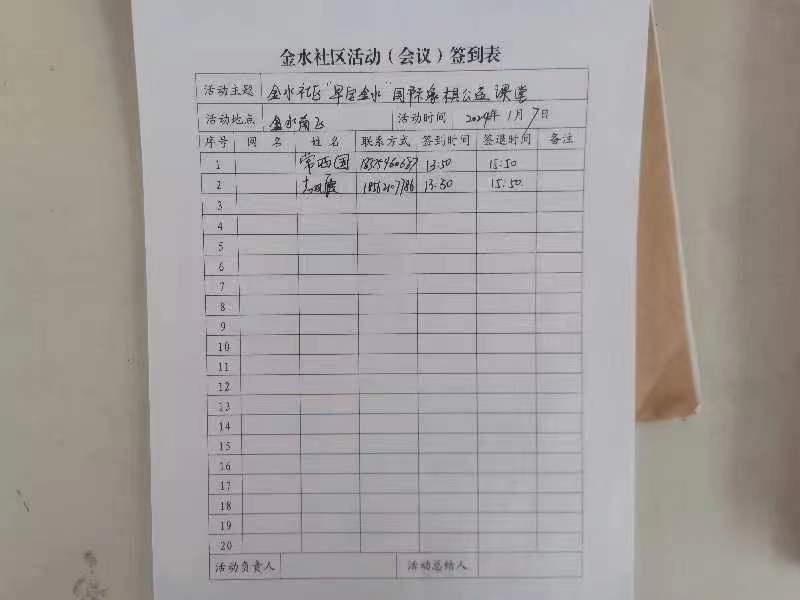 金水社区活动（会议）签到表
活动主题 金水社区"早安金水"国际象棋公益课堂
活动地点 金水 活动时间 2024年1月7日
序号 网名 姓名 联系方式 签到时间 签退时间 备注
1 常西国 13:50 15:50
2 13:50 15:50
3
4
5
6
7
8
9
10
11
12
13
14
15
16
17
18
19
20
活动负责人 活动总结人